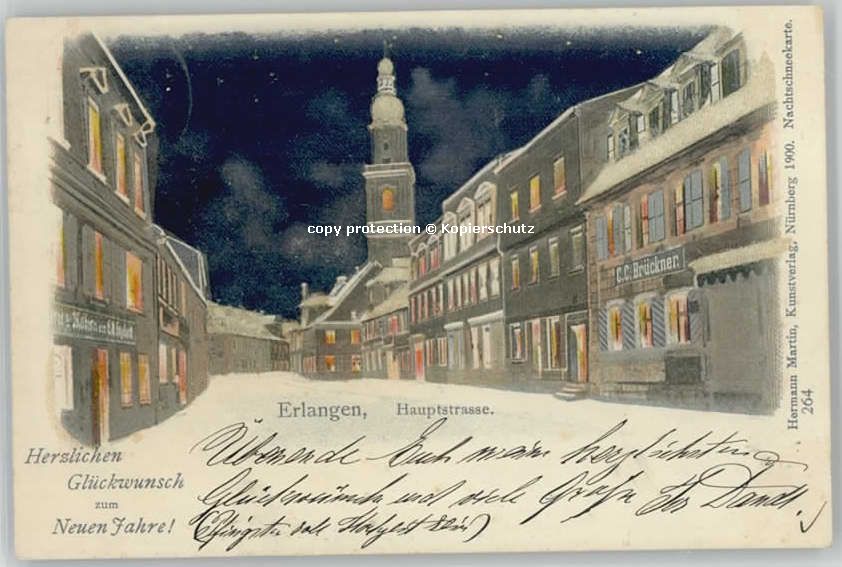 copy protection © Kopierschutz
C.C. Brückner.
Erlangen, Hauptstrasse.
Herzlichen
Glückwunsch
zum
Neuen Jahre!
Übersende Euch meine herzlichsten
Glückwünsche und viele Grüße Ihr
Hermann Martin, Kunstverlag, Nürnberg 1900. Nachtschneekarte.
264